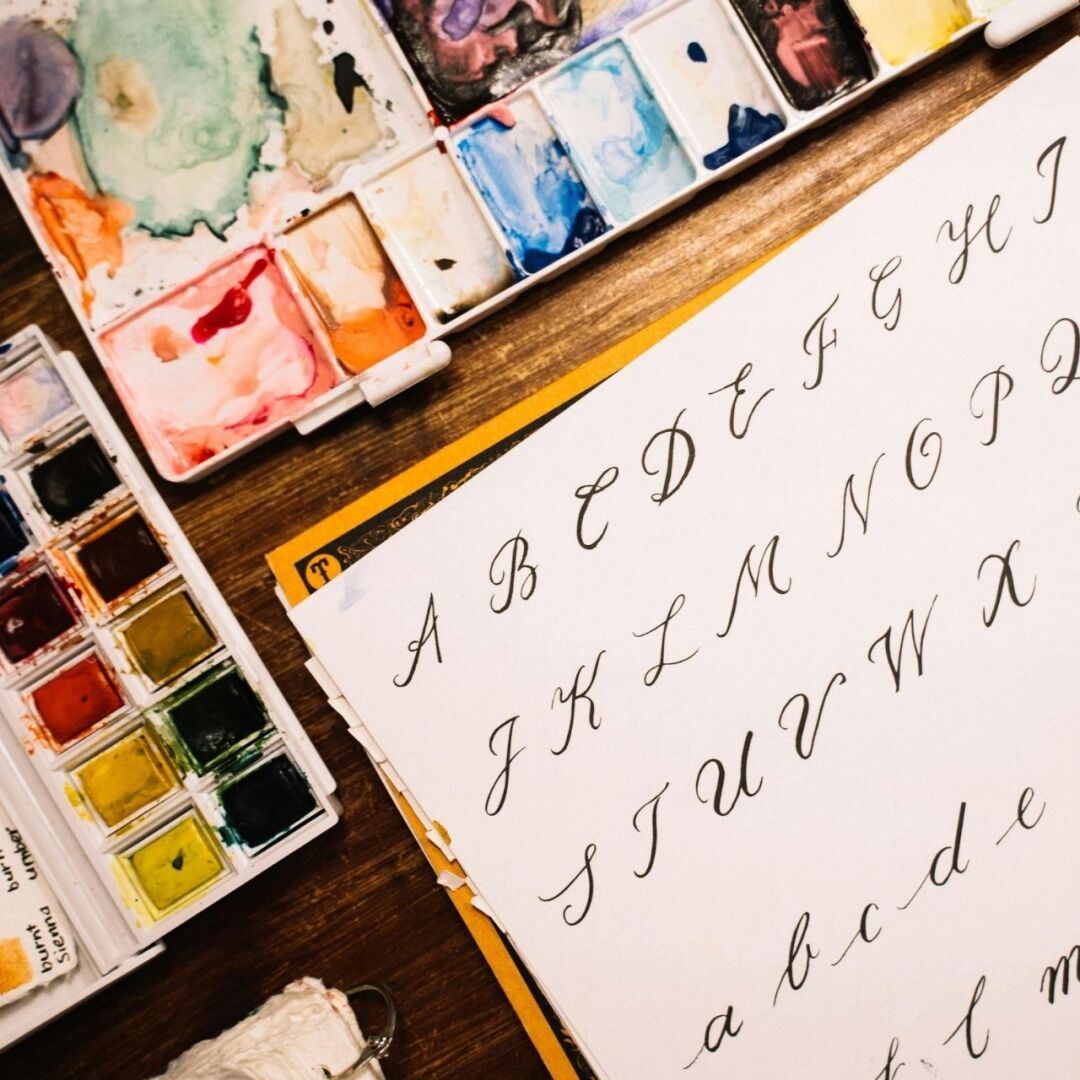 A B C D E F G H I
J K L M N O P Q
S T U V W X
a b c d e
l m
burnt umber
burnt Sienna
T